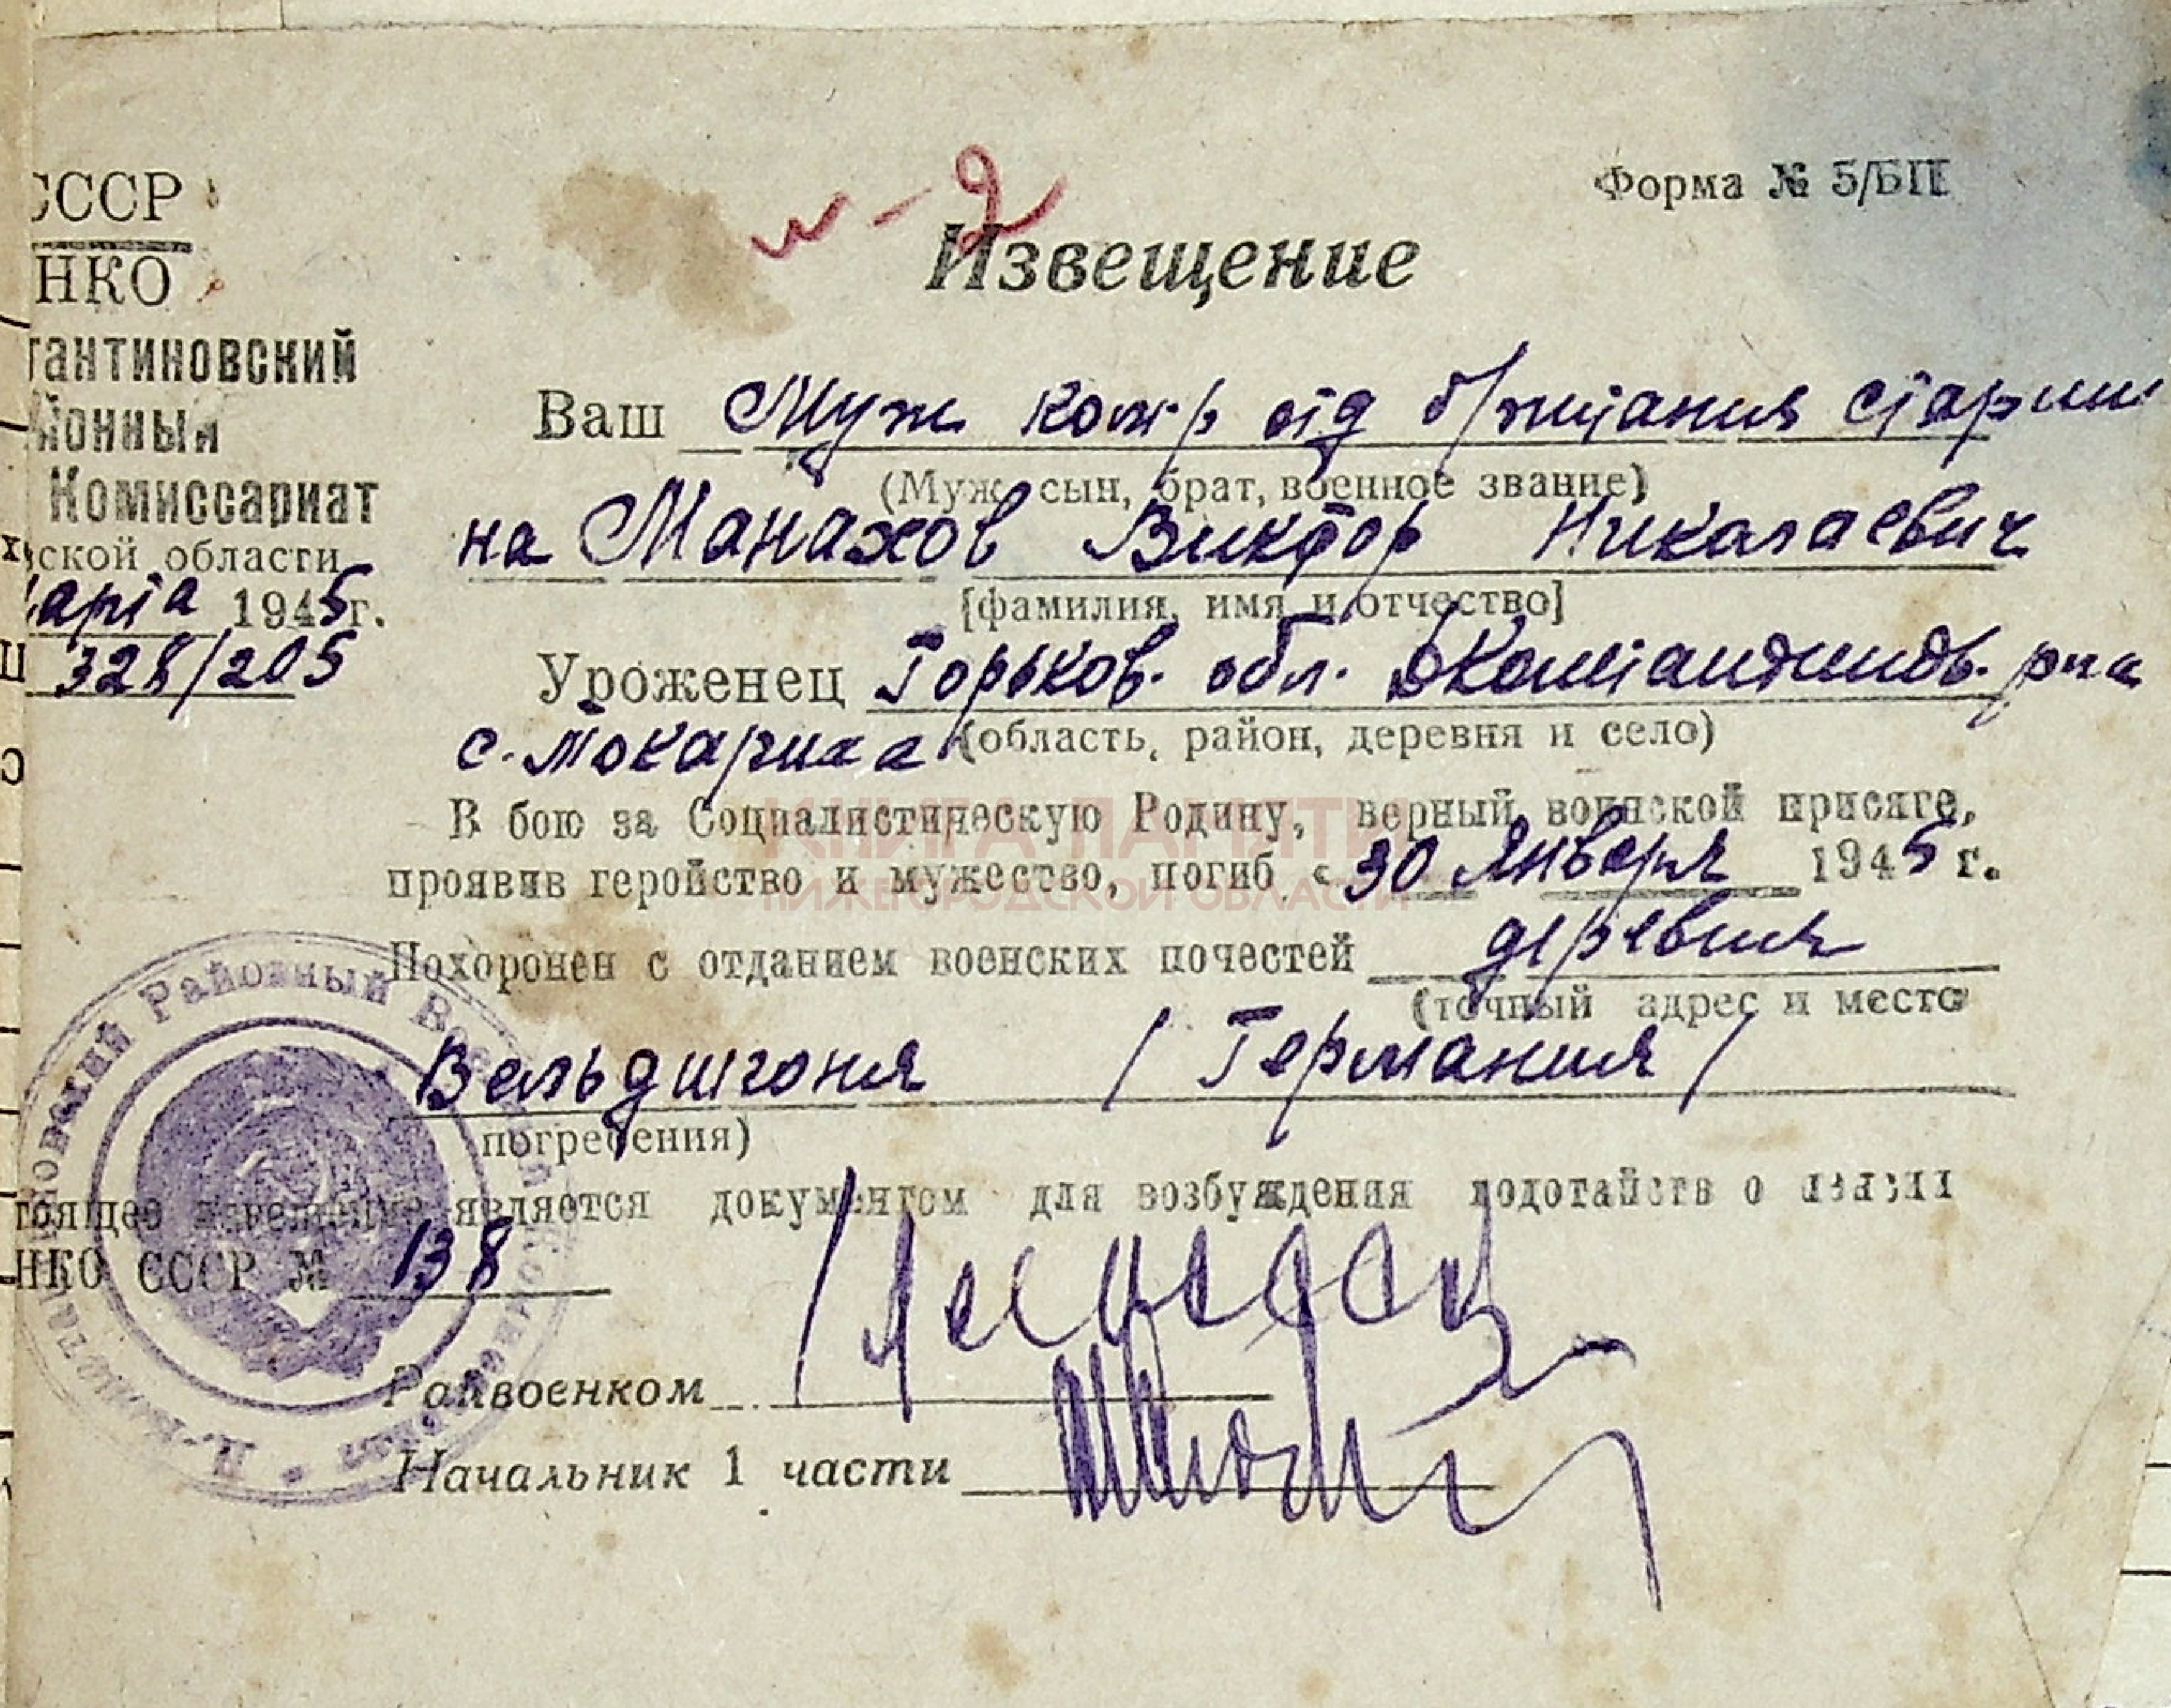 СССР
НКО
Форма № 5/БП
м-2
Извещение
тантиновский
йонный
Комиссариат
ской области
марта 1945 г.
328/205
Ваш Муж ком-р отд старши
(Муж сын, брат, военное звание)
на Манахов Виктор Николаевич
[фамилия, имя и отчество]
Уроженец Горьков. обл. р-на
с. Токариха (область, район, деревня и село)
В бою за Социалистическую Родину, верный воинской присяге,
проявив геройство и мужество, погиб «30 Января 1945 г.
Похоронен с отданием военских почестей деревня
(точный адрес и место
Вельдшгоня /Германия/
погребения)
тоящее извещение является документом для возбуждения ходотайств о пенсии
НКО СССР № 138
Райвоенком
Начальник 1 части
КНИГА ПАМЯТИ
НИЖЕГОРОДСКОЙ ОБЛАСТИ